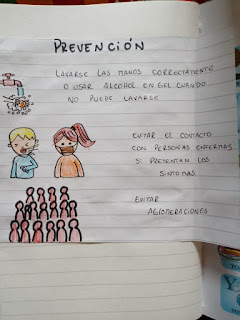 PREVENCIÓN
LAVARSE LAS MANOS CORRECTAMENTE
O USAR ALCOHOL EN GEL CUANDO
NO PUEDE LAVARSE
EVITAR EL CONTACTO
CON PERSONAS ENFERMAS
SI PRESENTAN LOS
SINTOMAS
EVITAR
AGLOMERACIONES